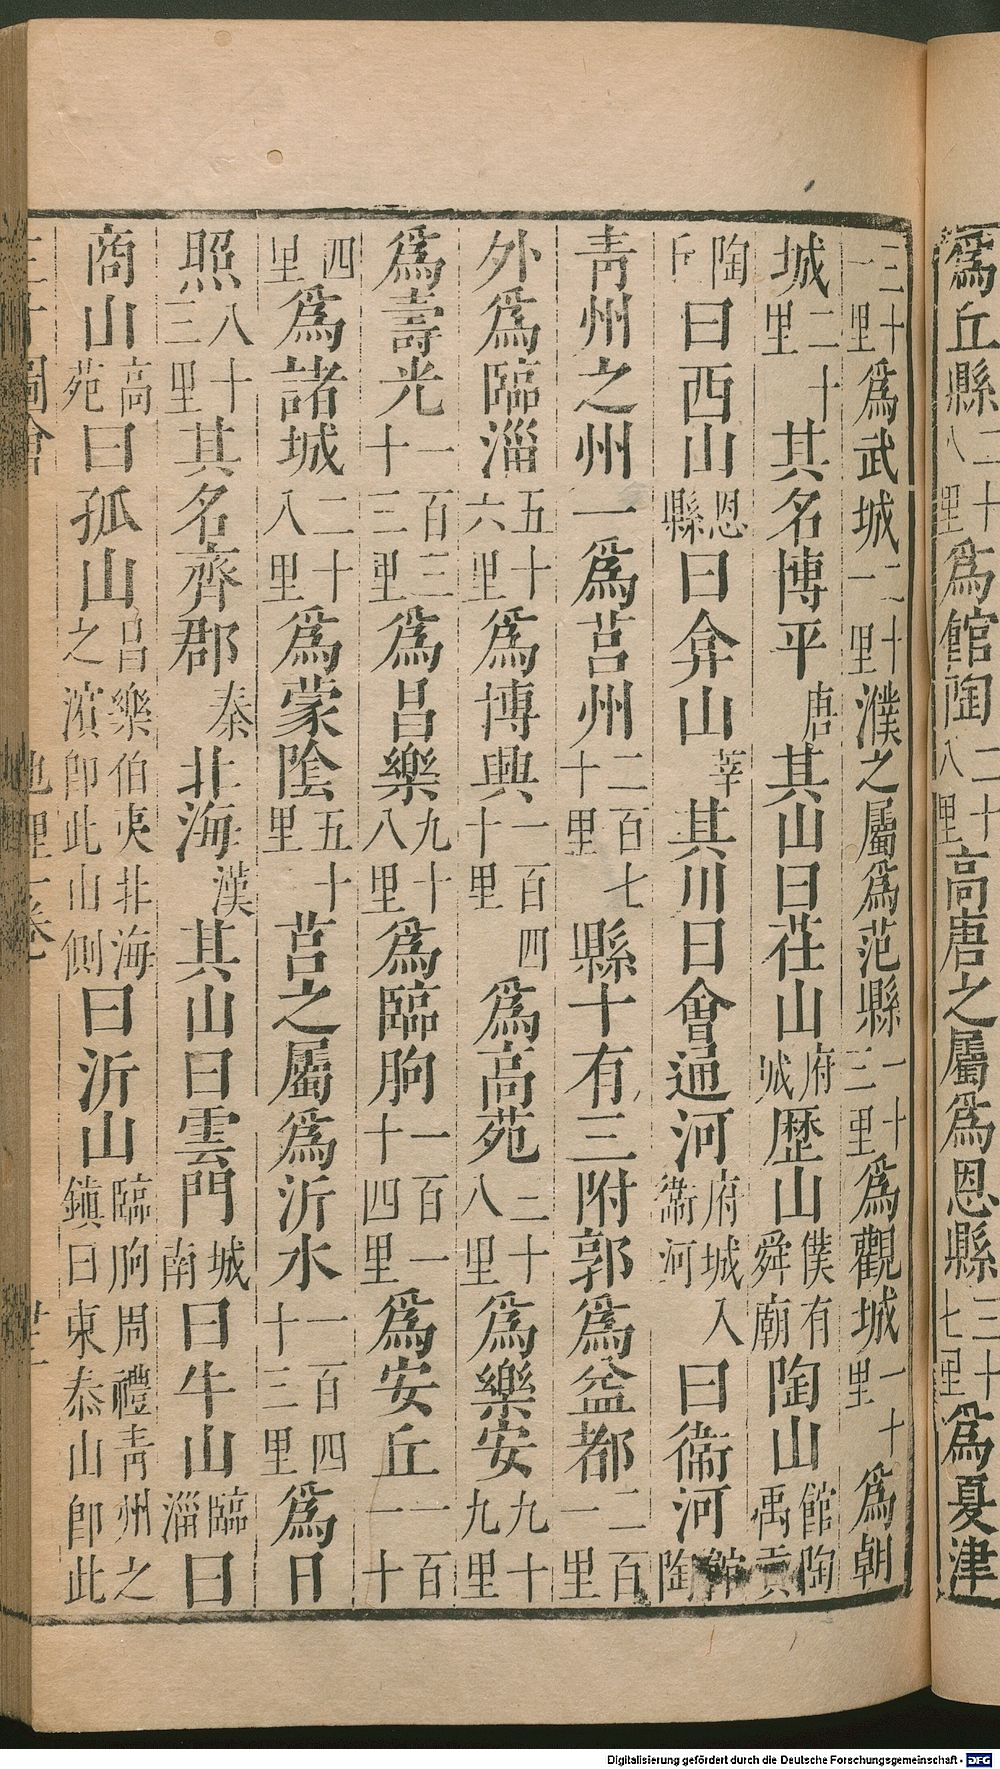 爲丘縣二十八里爲館陶二十八里高唐之屬爲恩縣三十七里爲夏津
三十一里爲武城二十一里濮之屬爲范縣一十三里爲觀城一十里爲朝
城二十里其名博平唐其山曰茌山府城歷山僕有舜廟陶山館陶禹貢
陶丘曰西山恩縣曰弇山莘其川曰會通河府城入衞河曰衞河館陶
青州之州一爲莒州二百七十里縣十有三附郭爲益都二百一里
外爲臨淄五十六里爲博興一百四十里爲高苑二十八里爲樂安九十九里
爲壽光一百三十三里爲昌樂九十八里爲臨朐一百一十四里爲安丘一百一十
四里爲諸城二十八里爲蒙陰五十里莒之屬爲沂水一百四十三里爲日
照八十三里其名齊郡秦北海漢其山曰雲門城南曰牛山臨淄曰
商山高苑曰孤山昌樂伯夷非海之濵卽此山側曰沂山臨朐周禮靑州之鎮曰東泰山卽此
三才圖會
地理二卷
Digitalisierung gefördert durch die Deutsche Forschungsgemeinschaft - DFG